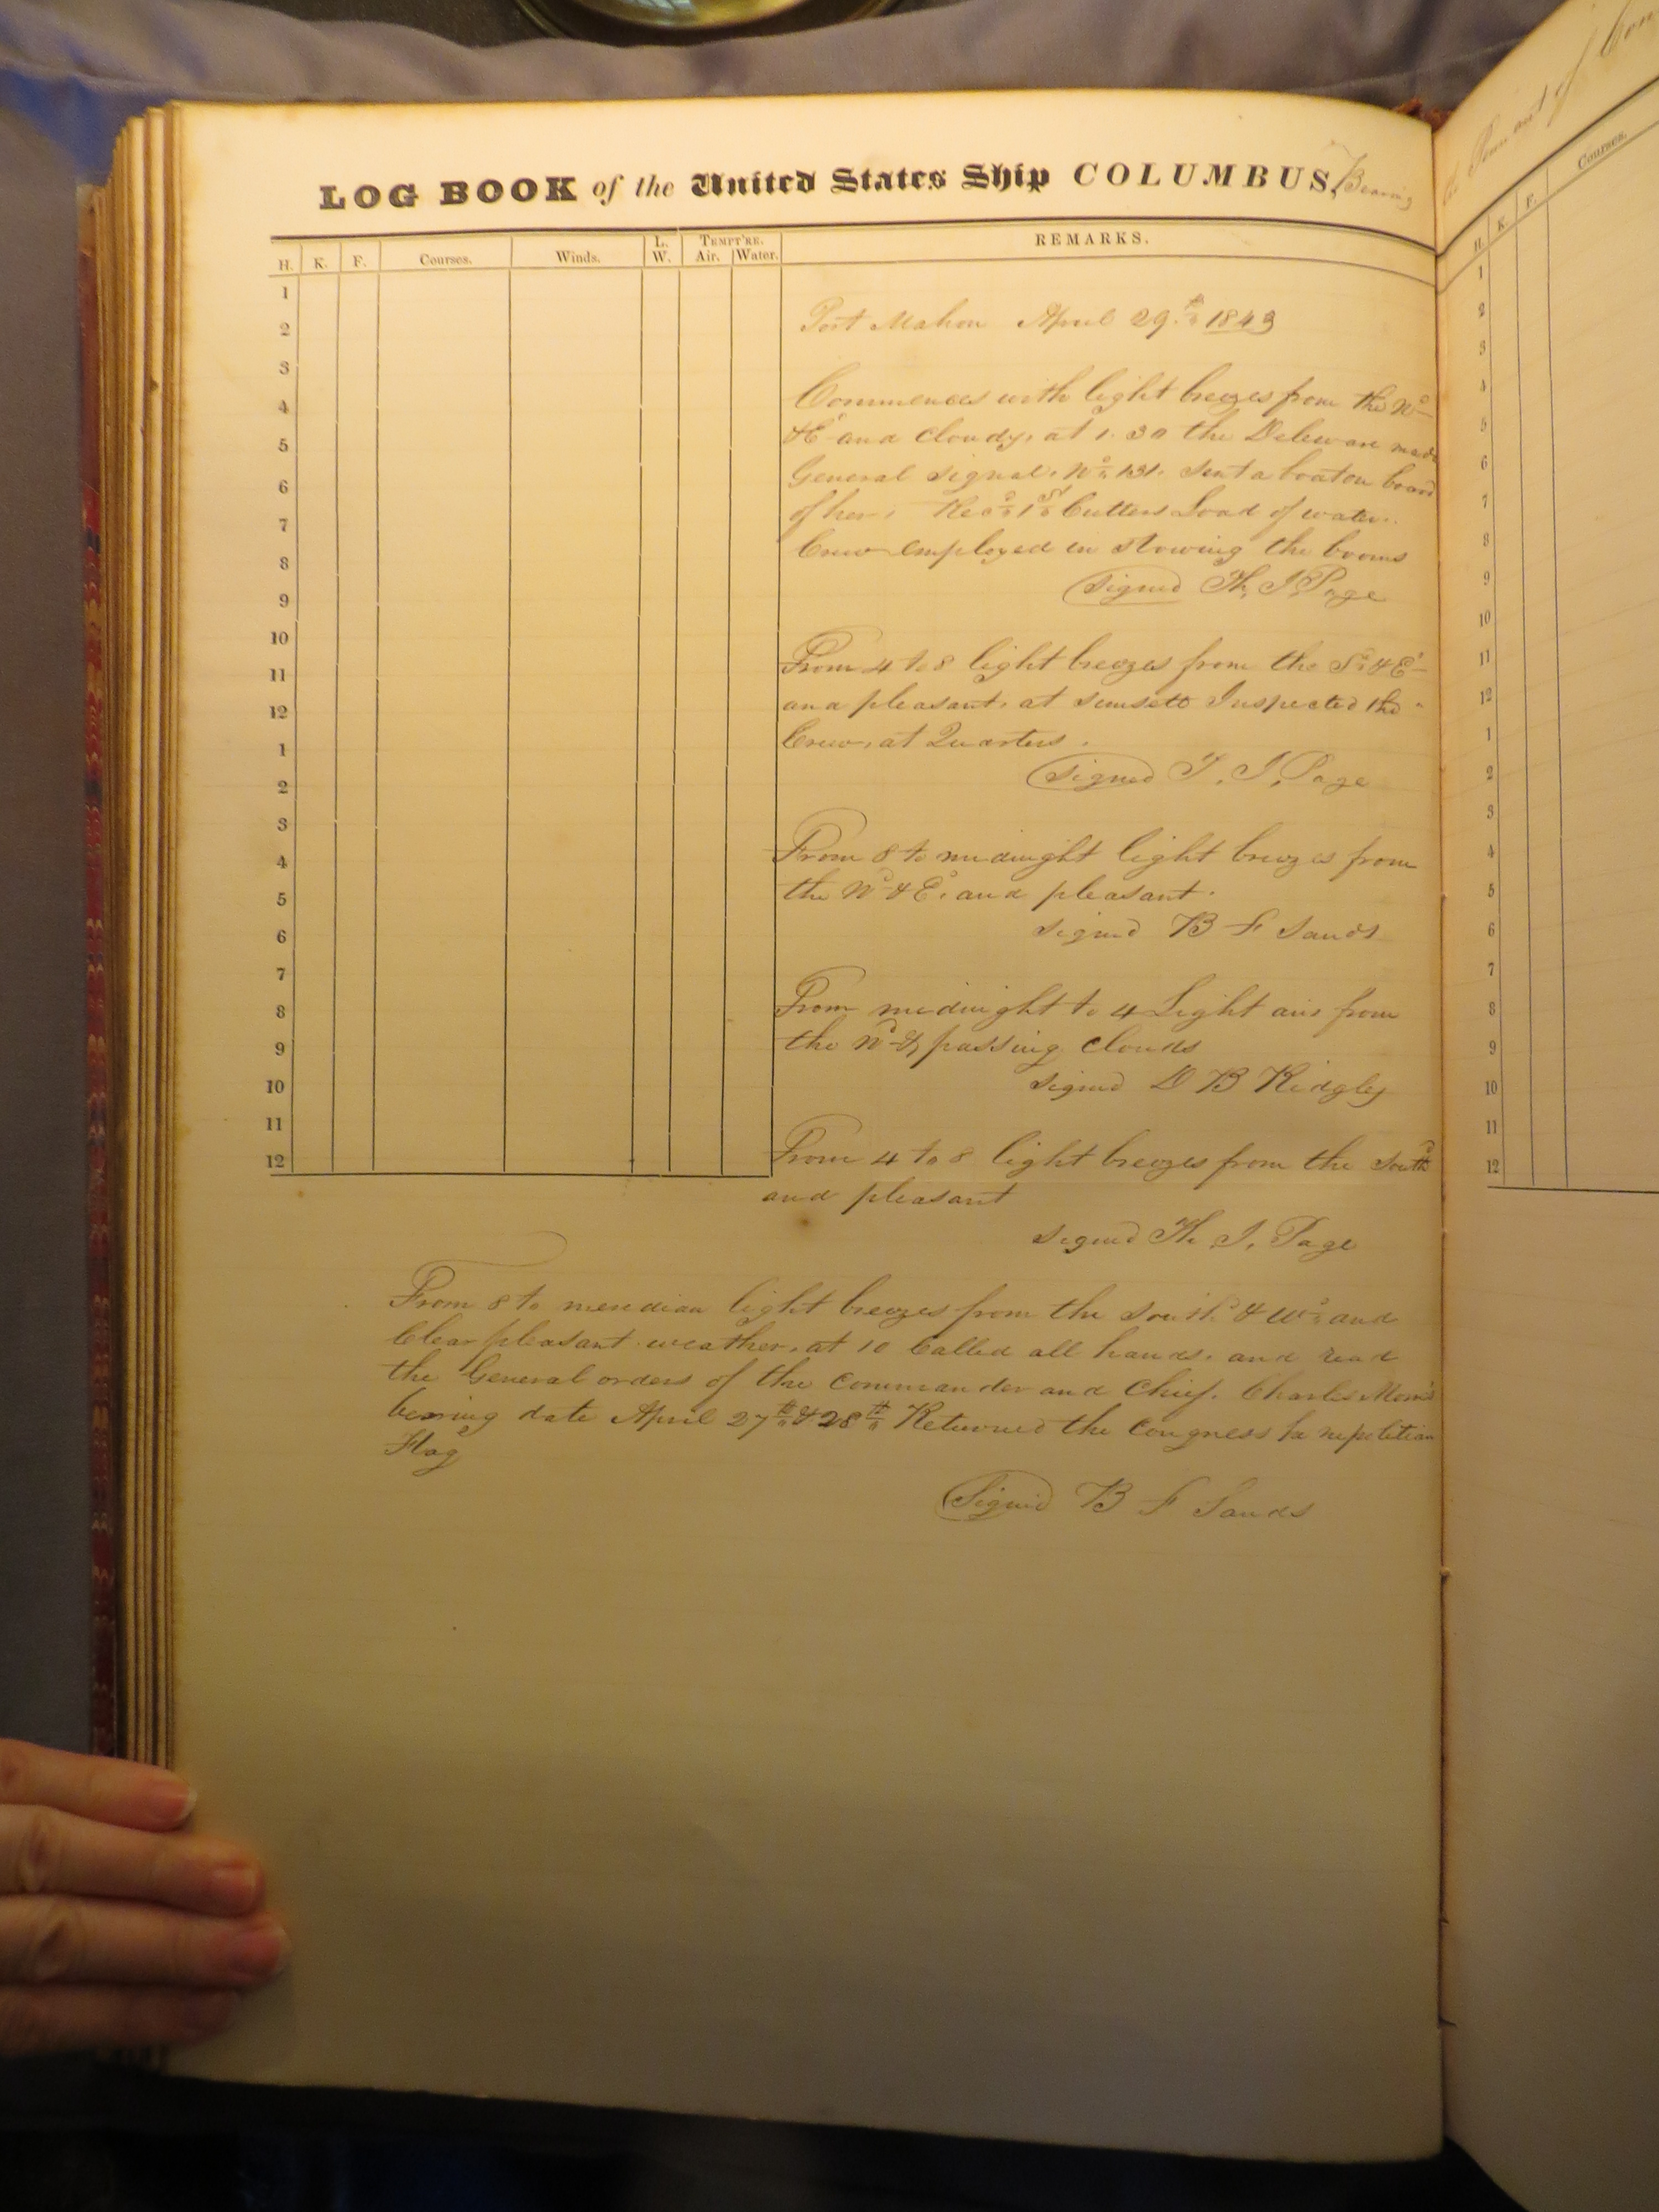 LOG BOOK of the United States Ship COLUMBUS, Bearing
H. K. F. Courses. Winds. L. W. TEMPT'RE. Air. Water. REMARKS.
1
2
3
4
5
6
7
8
9
10
11
12
1
2
3
4
5
6
7
8
9
10
11
12
Port Mahon April 29th 1843
Commences with light breezes from the Nd
& Ed and cloudy, at 1.30 the Deleware made
General signal. No 131. Sent a boat on board
of her, Recd 1st Cutters Load of water.
Crew employed in stowing the booms
Signed Th. J. Page
From 4 to 8 light breezes from the Sd & Ed
and pleasant, at sunsett Inspected the
Crew, at Quarters.
Signed T. J. Page
From 8 to midnight light breezes from
the Nd & Ed and pleasant.
Signed B F Sands
From midnight to 4 Light airs from
the Nd & passing clouds
Signed D B Ridgley
From 4 to 8 light breezes from the Southd
and pleasant
Signed Th J. Page
From 8 to meridian light breezes from the Southd & Wd and
Clear pleasant weather, at 10 Called all hands, and read
the General orders of the Commander and Chief. Charles Morris
bearing date April 27th & 28th Returned the Congress repetition
Flag
Signed B F Sands
Courses.
H. K. F.
1
2
3
4
5
6
7
8
9
10
11
12
1
2
3
4
5
6
7
8
9
10
11
12